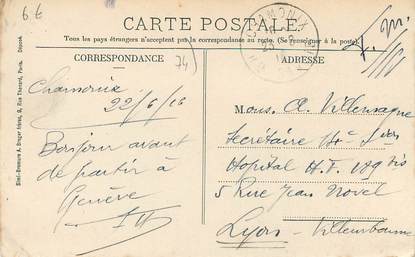 6.E
CARTE POSTALE
Tous les pays étrangers n'acceptent pas la correspondance au recto. (Se renseigner à la poste)
CORRESPONDANCE
74
ADRESSE
Chamonix
22/6/16
Bonjour avant
de partir à
Genève
Mons. A. Villemagne
Secrétaire
Hopital H.F. 189 bis
5 Rue Jean Novel
Lyon - Villeurbanne
Simi-Bromure A. Breger frères, 9, Rue Thénard, Paris. Déposé.